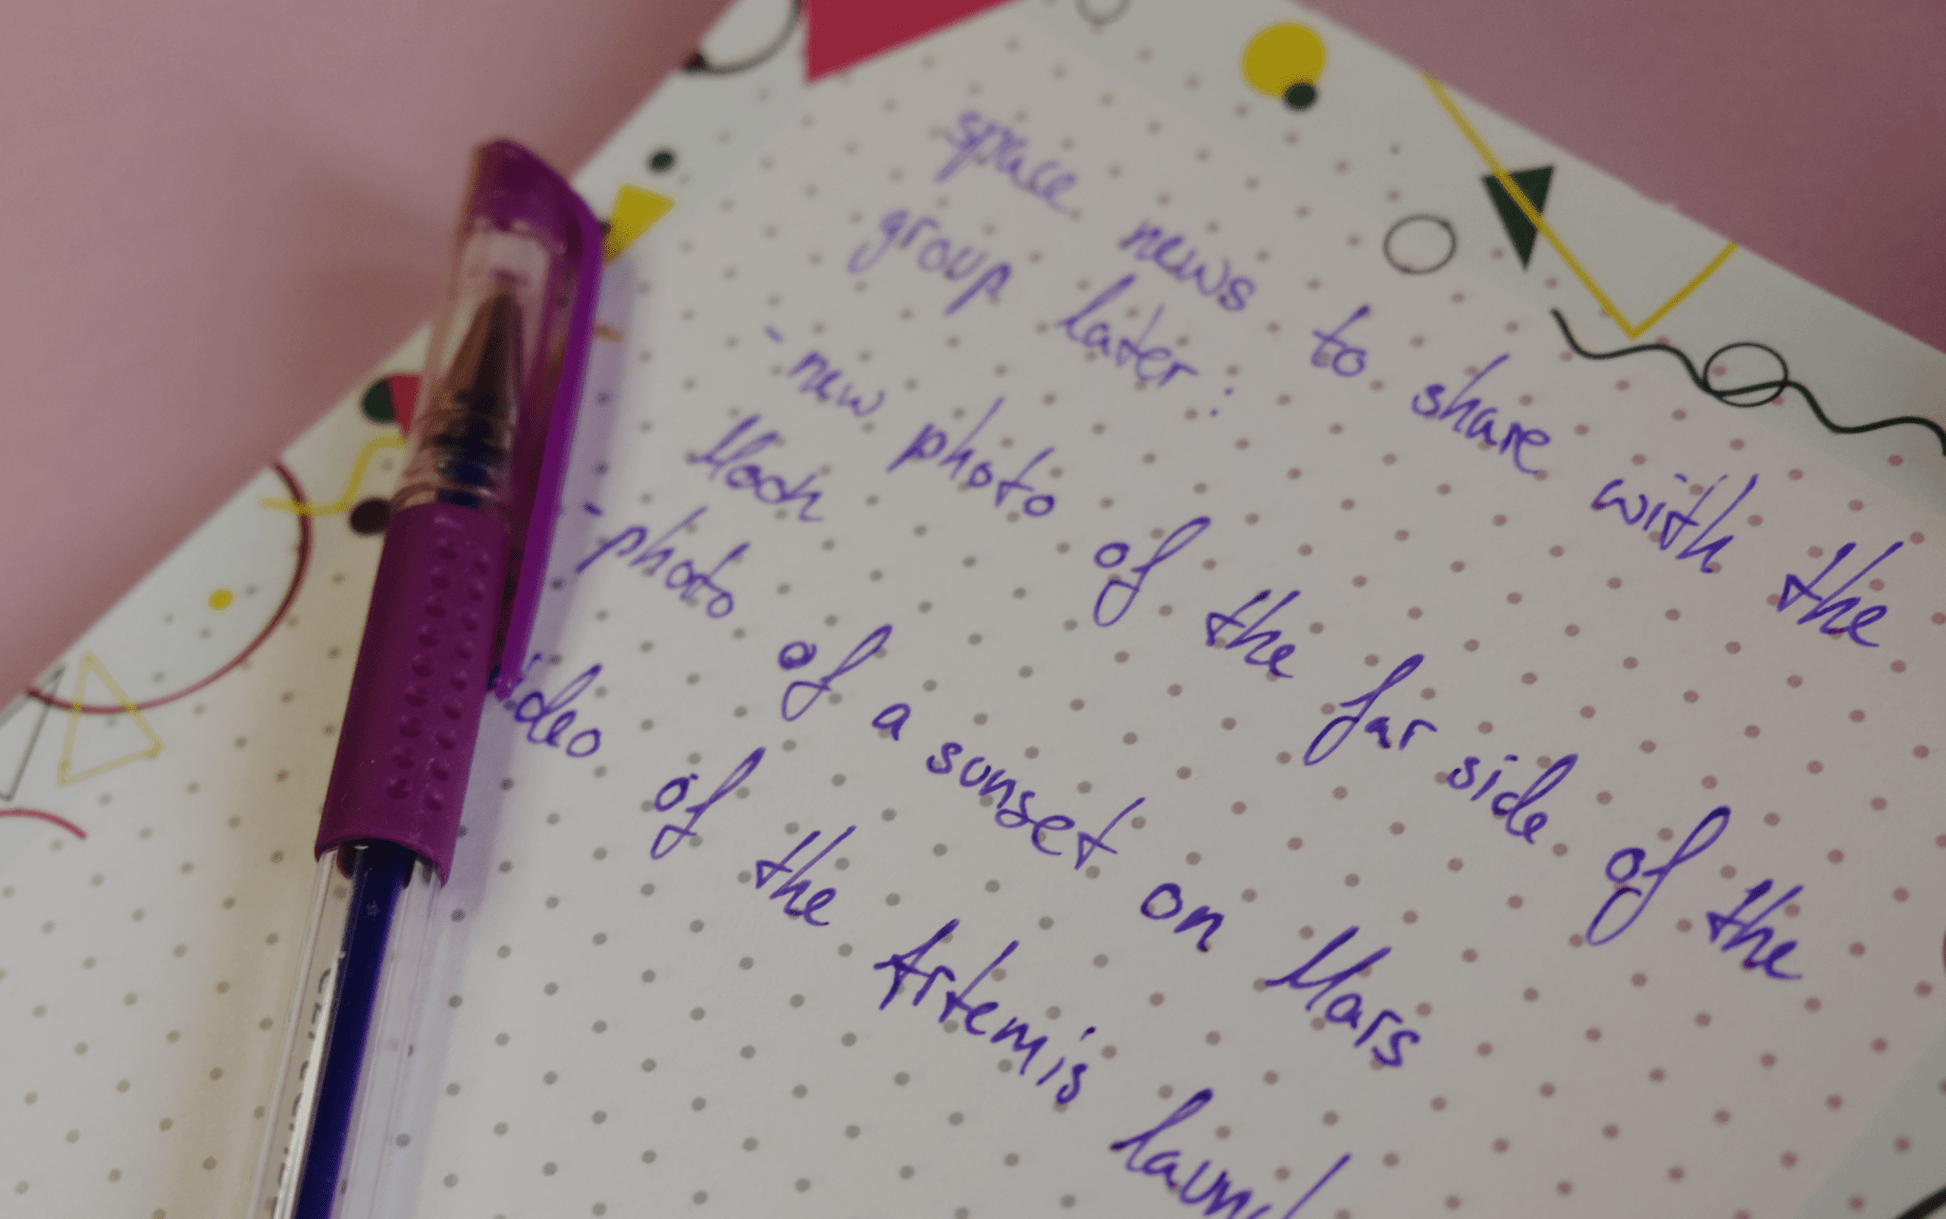 space news to share with the
group later:
- new photo of the far side of the
Moon
- photo of a sunset on Mars
ideo of the Artemis launch